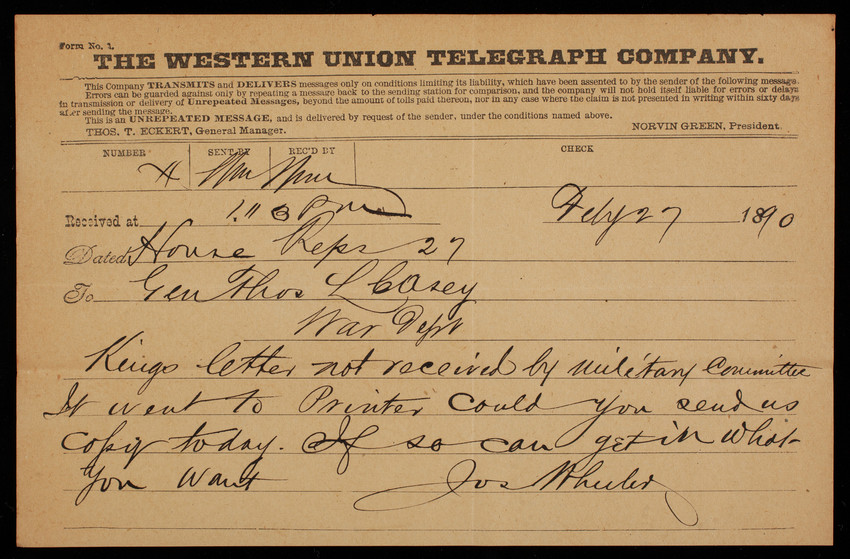 Form No. 1.
THE WESTERN UNION TELEGRAPH COMPANY.
This Company TRANSMITS and DELIVERS messages only on conditions limiting its liability, which have been assented to by the sender of the following message.
Errors can be guarded against only by repeating a message back to the sending station for comparison, and the company will not hold itself liable for errors or delays
in transmission or delivery of Unrepeated Messages, beyond the amount of tolls paid thereon, nor in any case where the claim is not presented in writing within sixty days
after sending the message.
This is an UNREPEATED MESSAGE, and is delivered by request of the sender, under the conditions named above.
THOS. T. ECKERT, General Manager. NORVIN GREEN, President.
NUMBER SENT BY REC'D BY CHECK
Received at 1.113 PM Feby 27 1890
Dated House Reps 27
To Gen Thos L Casey
War Dept
Kings letter not received by military Committee
It went to Printer could you send us
copy today. If so can get in what
you want Jos Wheeler